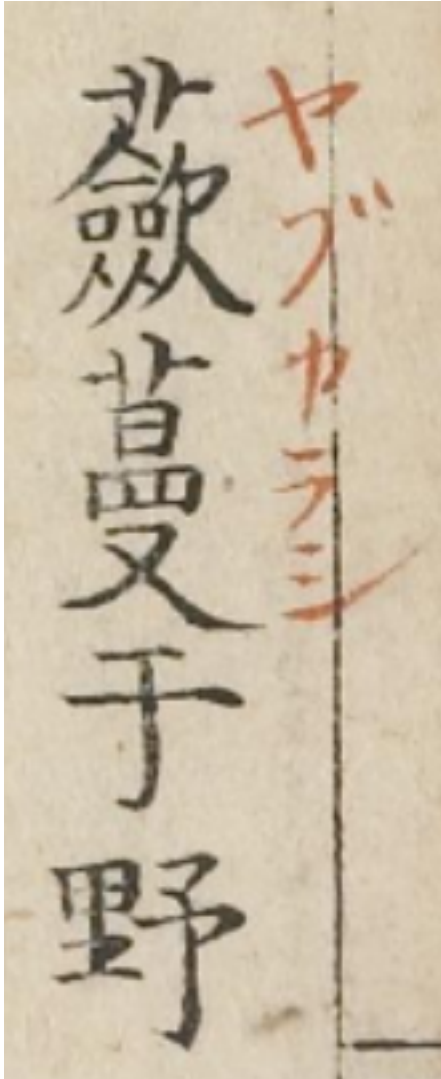 ヤブカラシ
蘞蔓于野